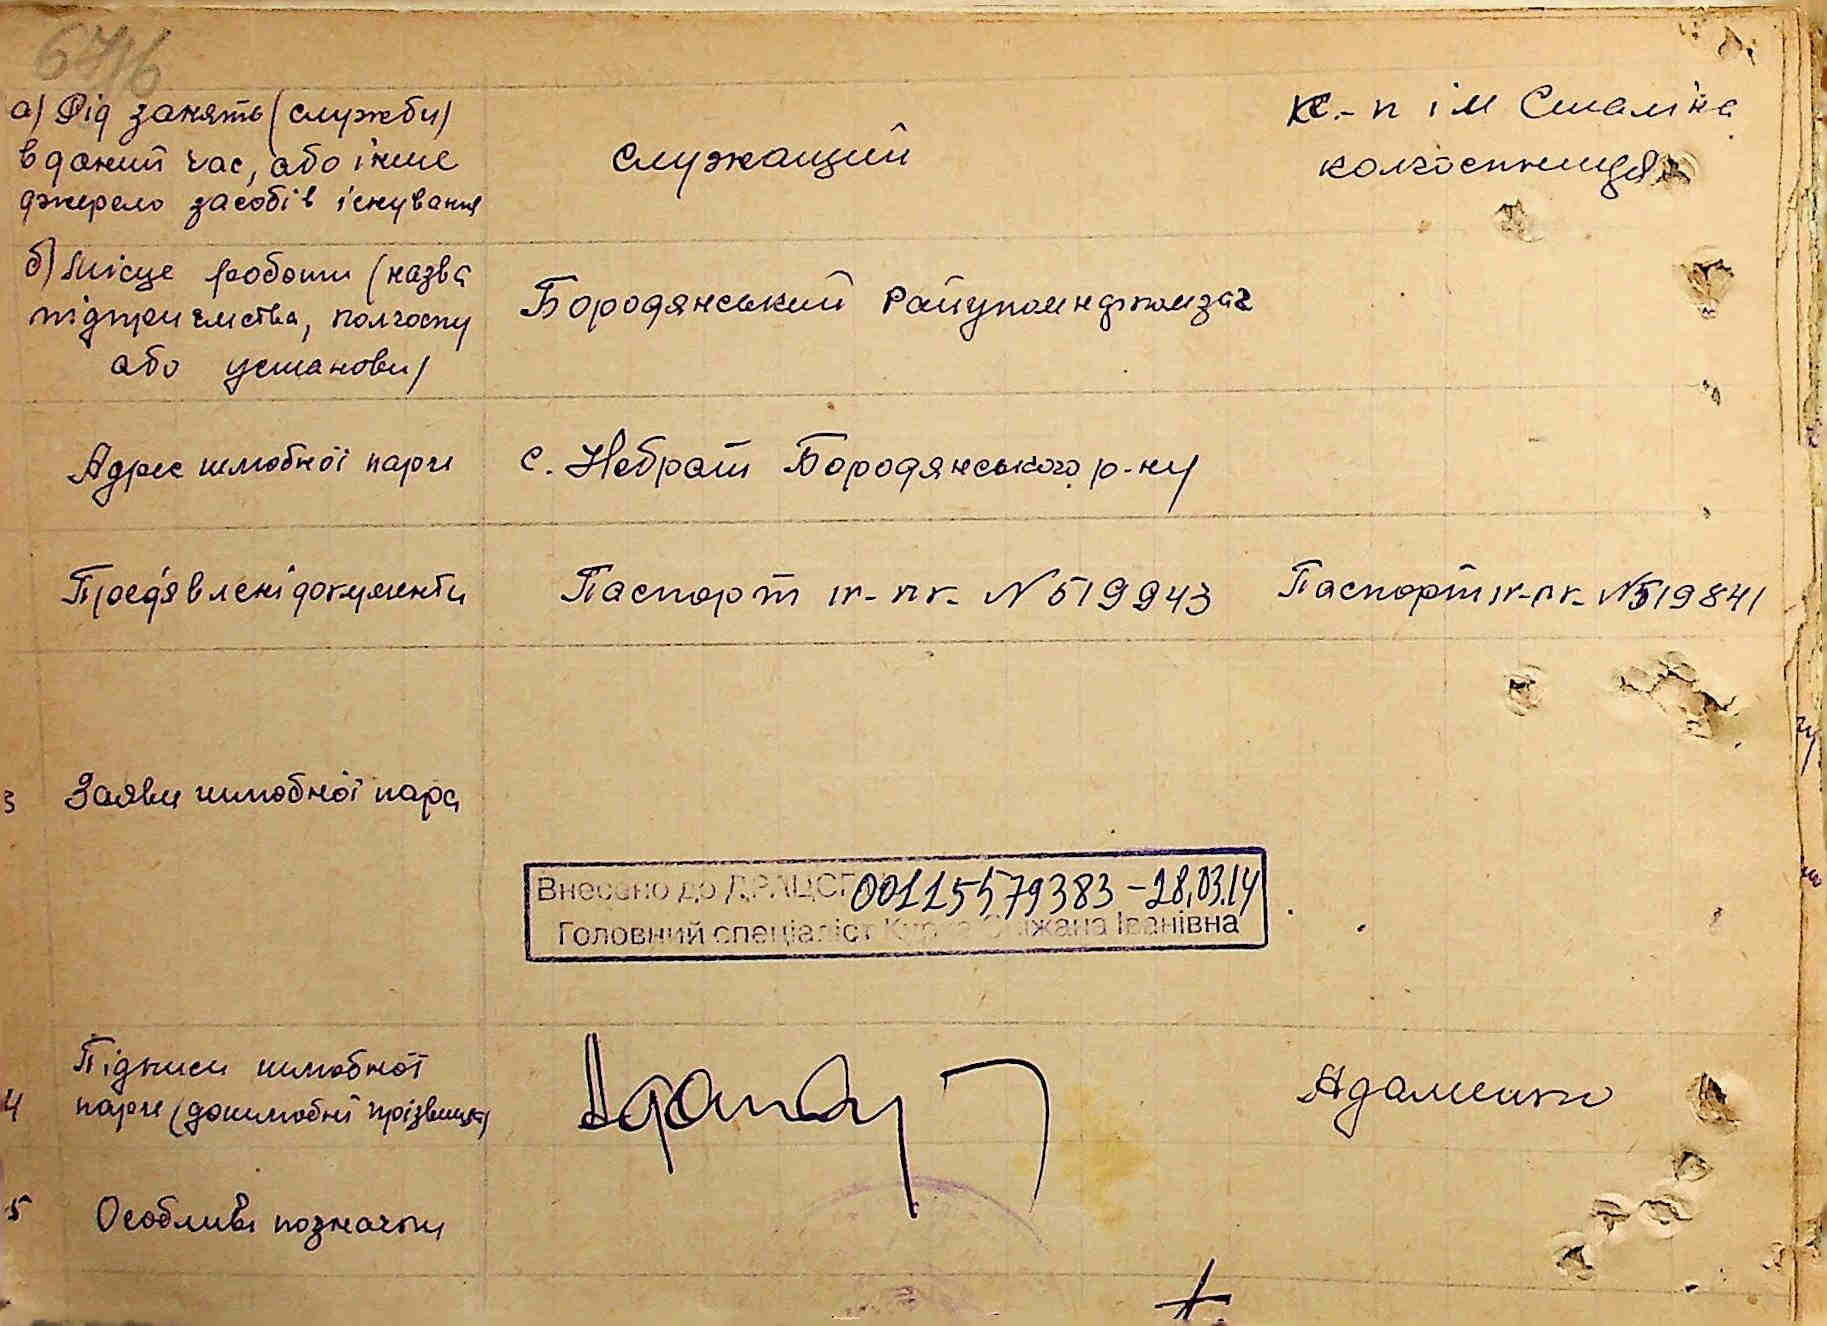 6716
а) Рід занять (служби)
в даний час, або інше
джерело засобів існування
служащий
к.-п ім Сталіна
колгоспниця
б) Місце роботи (назва
підприємства, колгоспу
або установи)
Бородянський
Адрес шлюбної пари
с. Небрат Бородянського р-ну
Предявлені документи
Паспорт N 519943
Паспорт N 519841
3 Заяви шлюбної пари
Внесено до ДРАЦСГ 00115579383 – 28.03.14
Головний спеціаліст Іванівна
4 Підписи шлюбної
пари (дошлюбні прізвища)
Адаменко
5 Особливі позначки